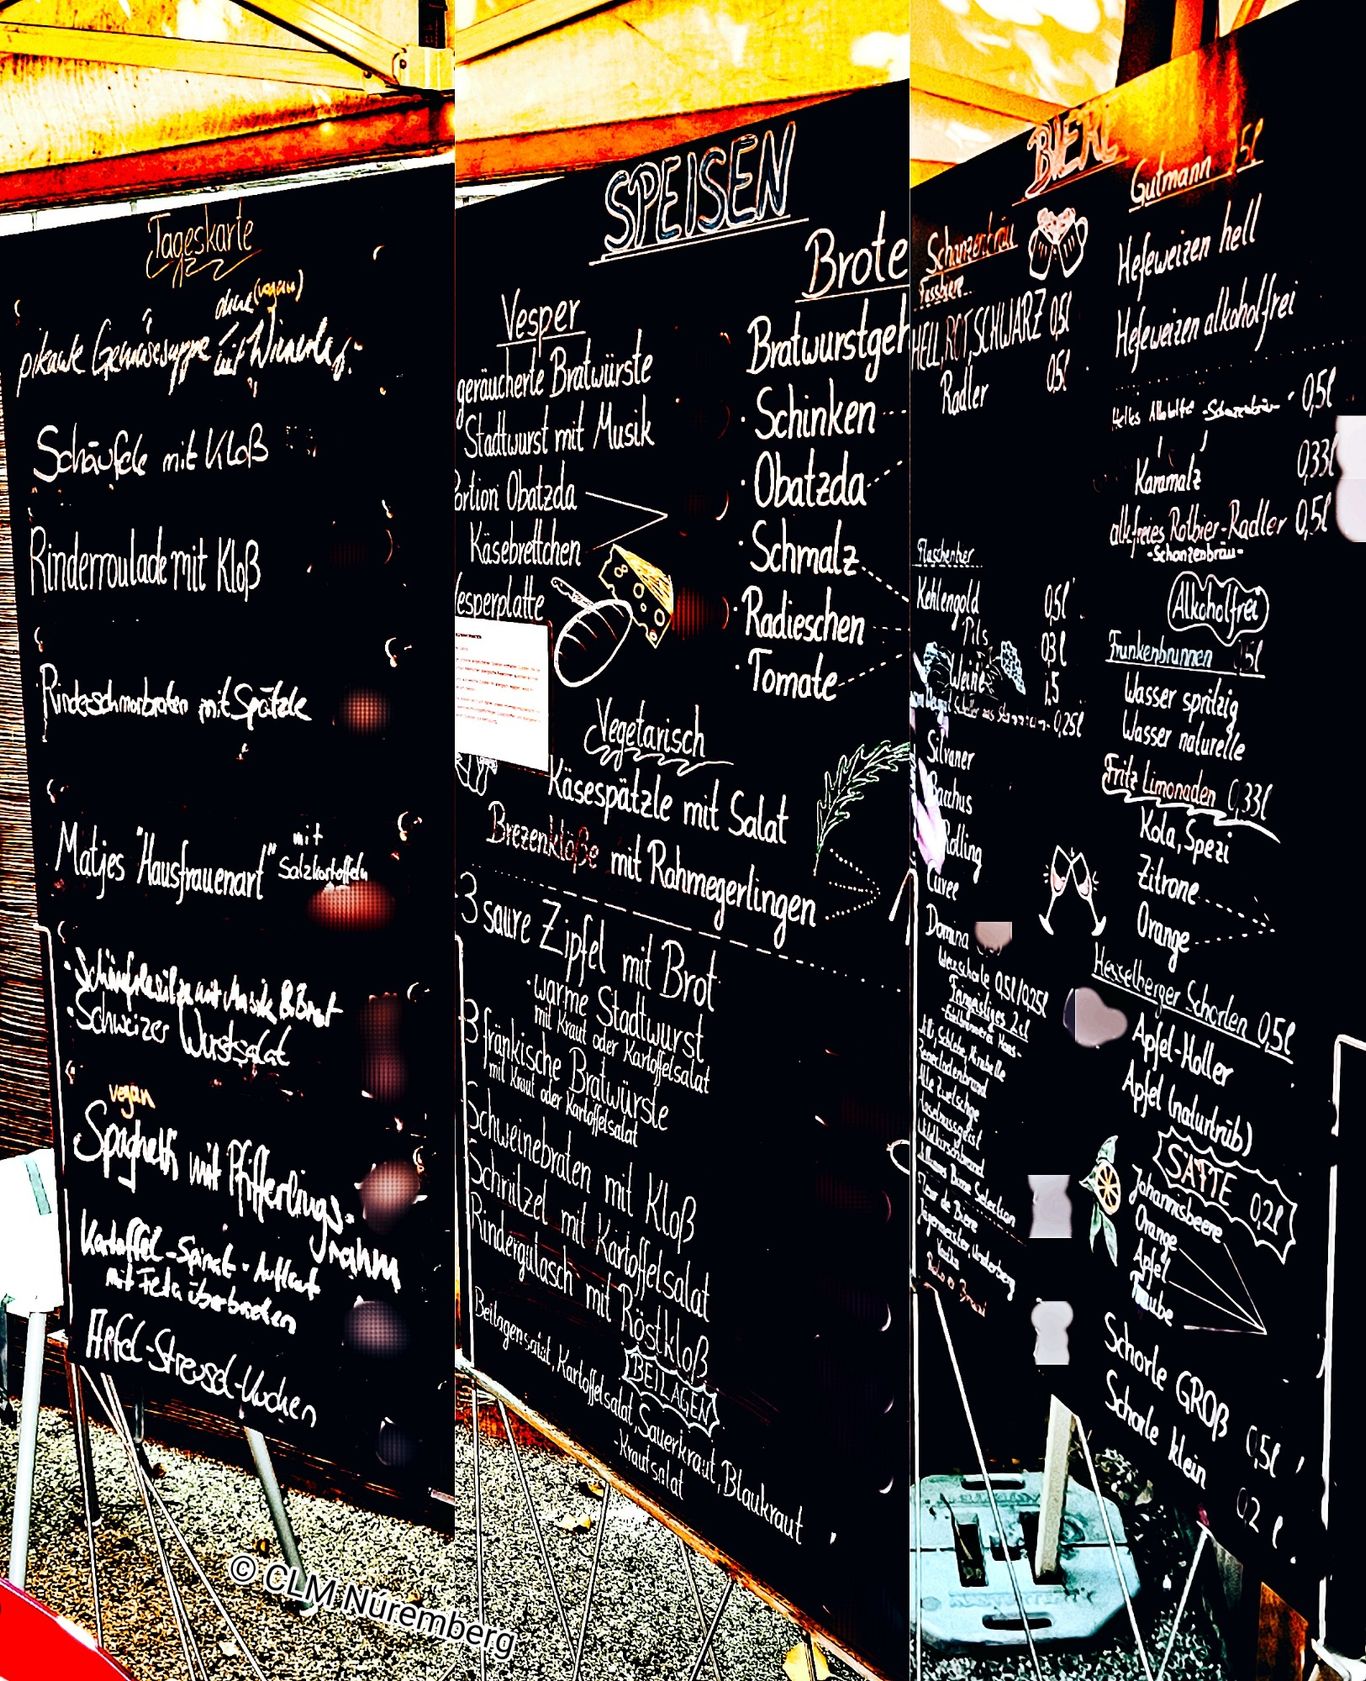 Tageskarte
ohne (vegan)
pikante Gemüsesuppe mit Wienerle
Schäufele mit Kloß
Rinderroulade mit Kloß
Rinderschmorbraten mit Spätzle
Matjes "Hausfrauenart" mit
Salzkartoffeln
Musik & Brot
· Schweizer Wurstsalat
vegan
Spaghetti mit Pfifferlings-
rahm
Kartoffel-Spinat-Auflauf
mit Feta überbacken
Apfel-Streusel-Kuchen
SPEISEN
Vesper
geräucherte Bratwürste
Stadtwurst mit Musik
Portion Obatzda
Käsebrettchen
Vesperplatte
Brote
Bratwurstgeh
· Schinken
· Obatzda
· Schmalz
· Radieschen
· Tomate
Vegetarisch
Käsespätzle mit Salat
Brezenklöße mit Rahmegerlingen
3 saure Zipfel mit Brot
· warme Stadtwurst
mit Kraut oder Kartoffelsalat
3 fränkische Bratwürste
mit Kraut oder Kartoffelsalat
Schweinebraten mit Kloß
Schnitzel mit Kartoffelsalat
Rindergulasch mit Röstkloß
BEILAGEN
Beilagensalat, Kartoffelsalat, Sauerkraut, Blaukraut
-Krautsalat
BIERE
Schanzenbräu
Fassbier
HELL, ROT, SCHWARZ 0,5l
Radler 0,5l
Flaschenbier
Kehlengold 0,5l
Pils 0,3l
Weine
0,25l
Silvaner
Bacchus
Cuvee
Domina
Weinschorle 0,5l/0,25l
Gutmann 0,5l
Hefeweizen hell
Hefeweizen alkoholfrei
-Schanzenbräu- 0,5l
Karamalz 0,33l
alk.freies Rotbier-Radler 0,5l
-Schanzenbräu-
Alkoholfrei
Frankenbrunnen 0,5l
Wasser spritzig
Wasser naturelle
Fritz Limonaden 0,33l
Kola, Spezi
Zitrone
Orange
Hesselberger Schorlen 0,5l
Apfel-Holler
Apfel (naturtrüb)
SÄFTE 0,2l
Johannisbeere
Orange
Apfel
Traube
Schorle GROß 0,5l
Schorle klein 0,2l
© CLM Núremberg